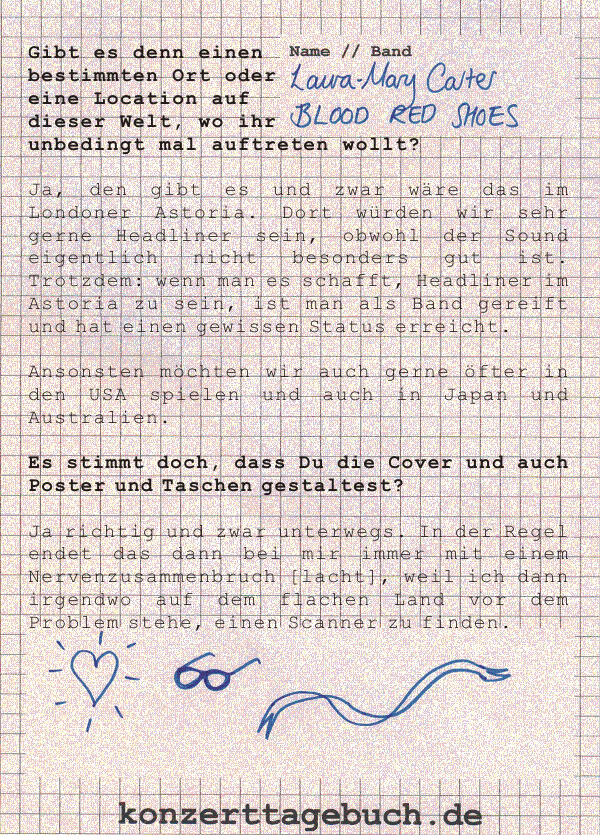 Gibt es denn einen
bestimmten Ort oder
eine Location auf
dieser Welt, wo ihr
unbedingt mal auftreten wollt?
Name // Band
Laura-Mary Carter
BLOOD RED SHOES
Ja, den gibt es und zwar wäre das im
Londoner Astoria. Dort würden wir sehr
gerne Headliner sein, obwohl der Sound
eigentlich nicht besonders gut ist.
Trotzdem: wenn man es schafft, Headliner im
Astoria zu sein, ist man als Band gereift
und hat einen gewissen Status erreicht.
Ansonsten möchten wir auch gerne öfter in
den USA spielen und auch in Japan und
Australien.
Es stimmt doch, dass Du die Cover und auch
Poster und Taschen gestaltest?
Ja richtig und zwar unterwegs. In der Regel
endet das dann bei mir immer mit einem
Nervenzusammenbruch [lacht], weil ich dann
irgendwo auf dem flachen Land vor dem
Problem stehe, einen Scanner zu finden.
konzerttagebuch.de